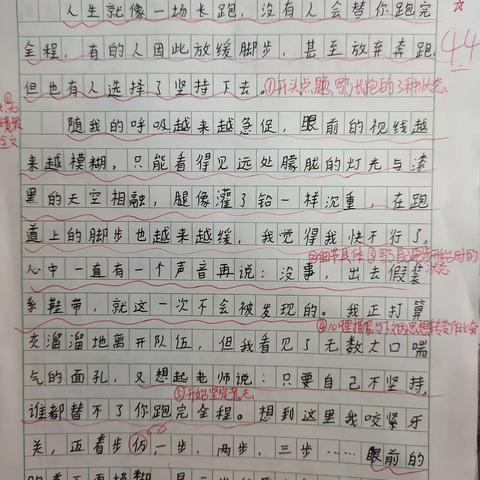 人生就像一场长跑，没有人会替你跑完
全程，有的人因此放缓脚步，甚至放弃奔跑
44
但也有人选择了坚持下去。①开头点题，写长跑的3种状态
随我的呼吸越来越急促，眼前的视线越
来越模糊，只能看得见远处朦胧的灯光与漆
黑的天空相融，腿像灌了铅一样沉重，在跑
道上的脚步也越来越缓，我觉得我快不行了，
心中一直有一个声音再说：没事，出去假装
系鞋带，就这一次不会被发现的。我正打算
灰溜溜地离开队伍，但我看见了无数大口喘
气的面孔，又想起老师说：只要自己不坚持，
谁都替不了你跑完全程。想到这里我咬紧牙
关，迈着步伤，一步，两步，三步……眼前的